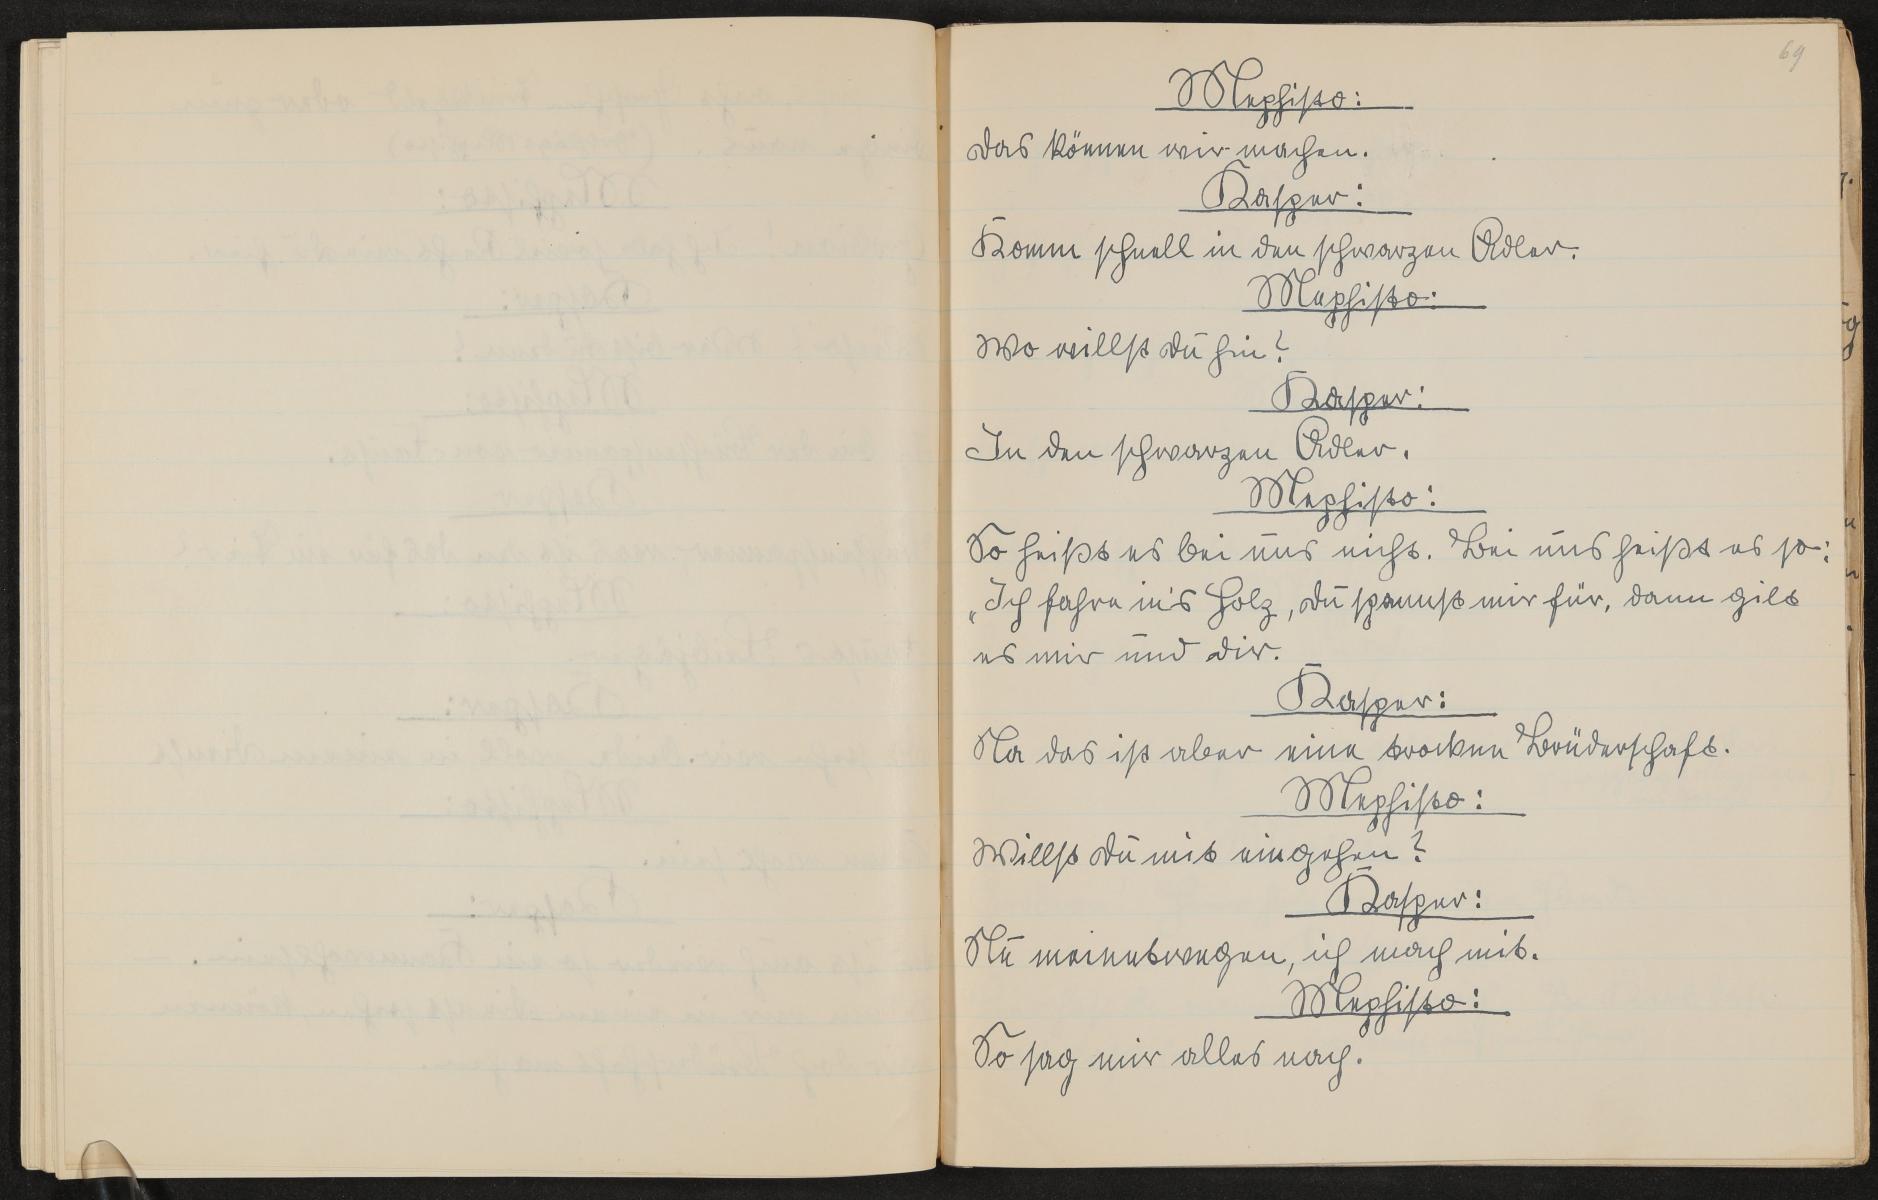 69
Mephisto:
Das können wir machen.
Kasper:
Komm schnell in den schwarzen Adler.
Mephisto:
Wo willst Du hin?
Kasper:
In den schwarzen Adler.
Mephisto:
So heißt es bei uns nicht. Bei uns heißt es so:
„Ich fahre in's Holz, Du spannst mir für, dann gilt
es mir und Dir.
Kasper:
Na das ist aber eine trocken Brüderschaft.
Mephisto:
Willst Du mit eingehen?
Kasper:
Nu meinetwegen, ich mach mit.
Mephisto:
So sag mir alles nach.